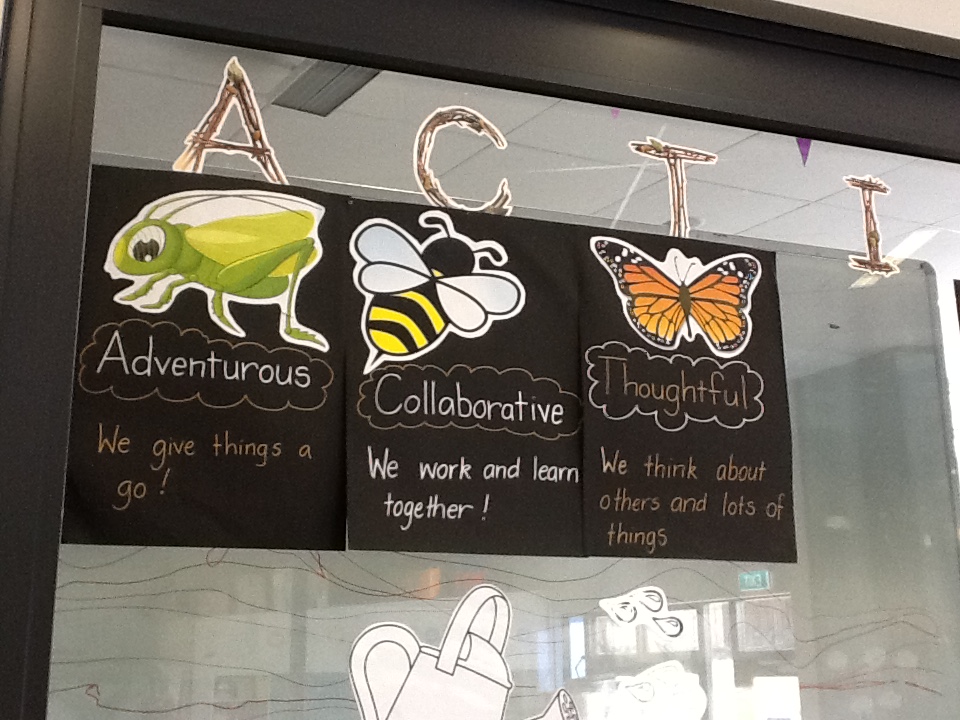 A C T I
Adventurous
We give things a
go!
Collaborative
We work and learn
together!
Thoughtful
We think about
others and lots of
things